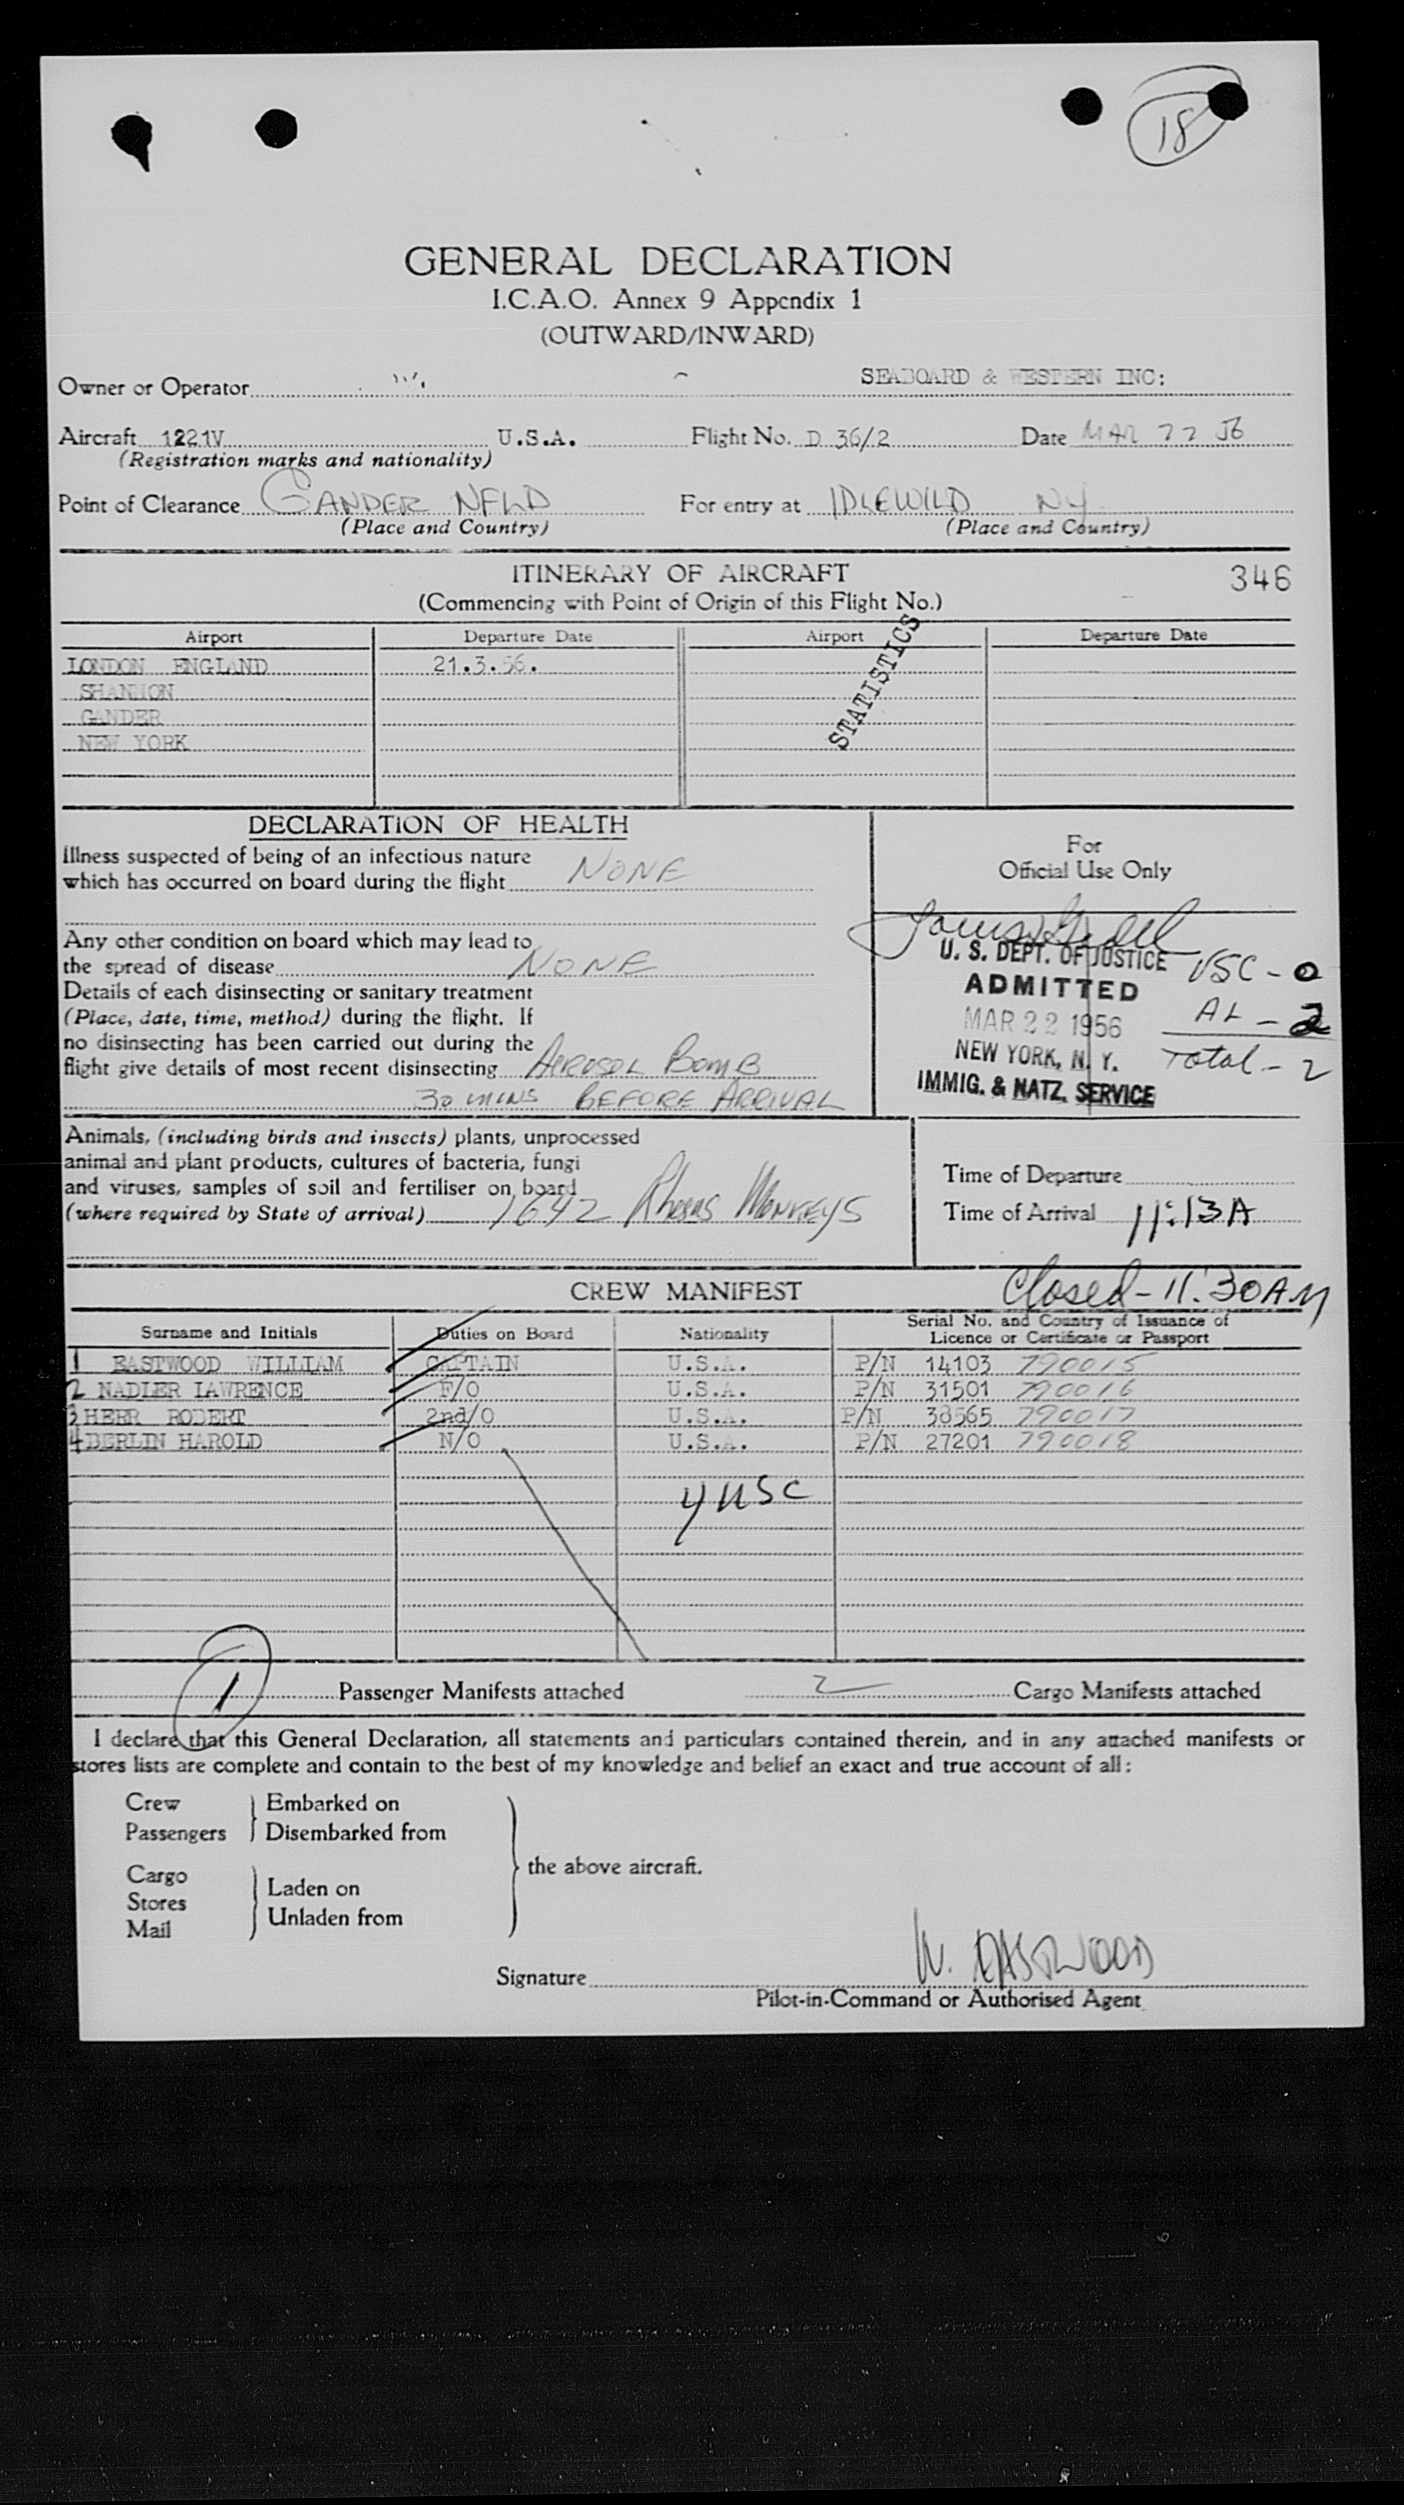 18
GENERAL DECLARATION
I.C.A.O. Annex 9 Appendix 1
(OUTWARD/INWARD)
Owner or Operator SEABOARD & WESTERN INC:
Aircraft 1221V U.S.A. Flight No. D 36/2 Date MAR 22 56
(Registration marks and nationality)
Point of Clearance GANDER NFLD For entry at IDLEWILD NY
(Place and Country) (Place and Country)
ITINERARY OF AIRCRAFT 346
(Commencing with Point of Origin of this Flight No.)
Airport Departure Date Airport Departure Date
LONDON ENGLAND 21.3.56.
SHANNON
GANDER
NEW YORK
STATISTICS
DECLARATION OF HEALTH
Illness suspected of being of an infectious nature
which has occurred on board during the flight NONE
Any other condition on board which may lead to
the spread of disease NONE
Details of each disinsecting or sanitary treatment
(Place, date, time, method) during the flight. If
no disinsecting has been carried out during the
flight give details of most recent disinsecting AEROSOL BOMB
30 MINS BEFORE ARRIVAL
For
Official Use Only
U. S. DEPT. OF JUSTICE USC - 0
ADMITTED
MAR 22 1956 AL - 2
NEW YORK, N. Y. Total - 2
IMMIG. & NATZ. SERVICE
Animals, (including birds and insects) plants, unprocessed
animal and plant products, cultures of bacteria, fungi
and viruses, samples of soil and fertiliser on board
(where required by State of arrival) 1642 Rhesus Monkeys
Time of Departure
Time of Arrival 11:13A
CREW MANIFEST Closed - 11:30AM
Surname and Initials Duties on Board Nationality Serial No. and Country of Issuance of
Licence or Certificate or Passport
1 EASTWOOD WILLIAM CAPTAIN U.S.A. P/N 14103 790015
2 NADLER LAWRENCE F/O U.S.A. P/N 31501 790016
3 HERR ROBERT 2nd/O U.S.A. P/N 38565 790017
4 BERLIN HAROLD N/O U.S.A. P/N 27201 790018
4 USC
1 Passenger Manifests attached 2 Cargo Manifests attached
I declare that this General Declaration, all statements and particulars contained therein, and in any attached manifests or
stores lists are complete and contain to the best of my knowledge and belief an exact and true account of all:
Crew Embarked on
Passengers Disembarked from
the above aircraft.
Cargo Laden on
Stores
Mail Unladen from
Signature W. EASTWOOD
Pilot-in-Command or Authorised Agent